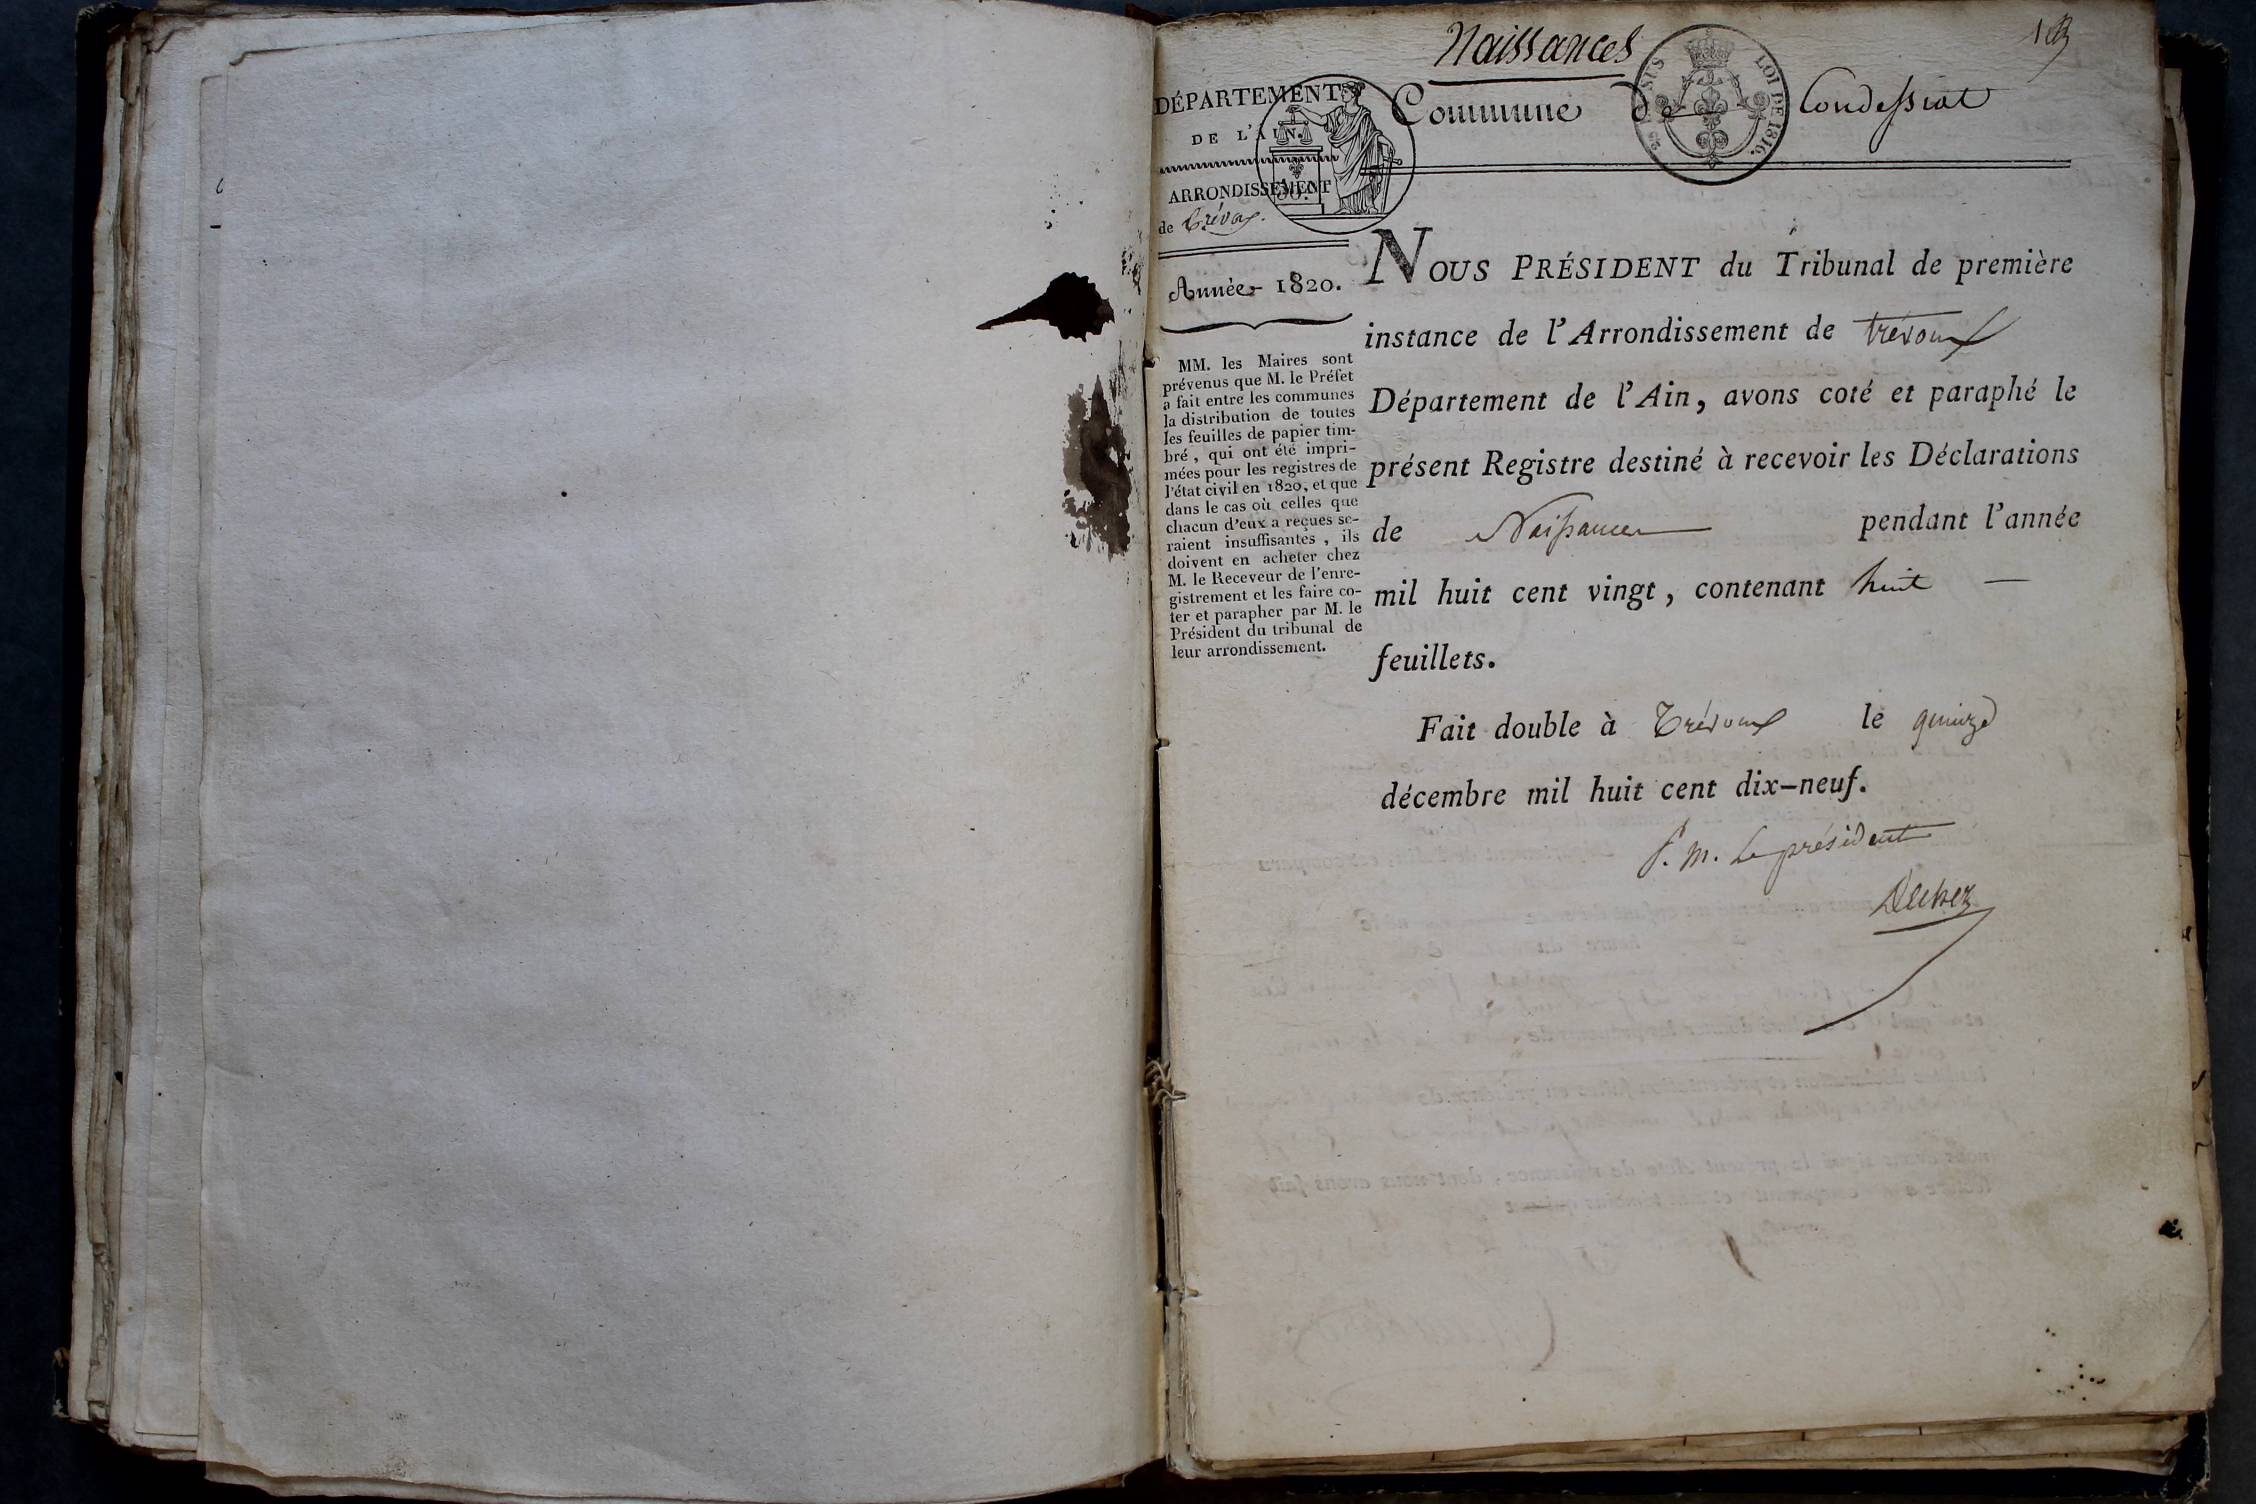 Naissances
DÉPARTEMENT
DE L'AIN.
ARRONDISSEMENT
de Trévoux.
Année 1820.
MM. les Maires sont
prévenus que M. le Préfet
a fait entre les communes
la distribution de toutes
les feuilles de papier tim-
bré, qui ont été impri-
mées pour les registres de
l'état civil en 1820, et que
dans le cas où celles que
chacun d'eux a reçues se-
raient insuffisantes, ils
doivent en acheter chez
M. le Receveur de l'enre-
gistrement et les faire co-
ter et parapher par M. le
Président du tribunal de
leur arrondissement.
Commune de Condessiat
EN SUS
LOI DE 1816.
NOUS PRÉSIDENT du Tribunal de première
instance de l'Arrondissement de trévoux
Département de l'Ain, avons coté et paraphé le
présent Registre destiné à recevoir les Déclarations
de Naissances pendant l'année
mil huit cent vingt, contenant huit —
feuillets.
Fait double à Trévoux le quinze
décembre mil huit cent dix-neuf.
P. M. Le président